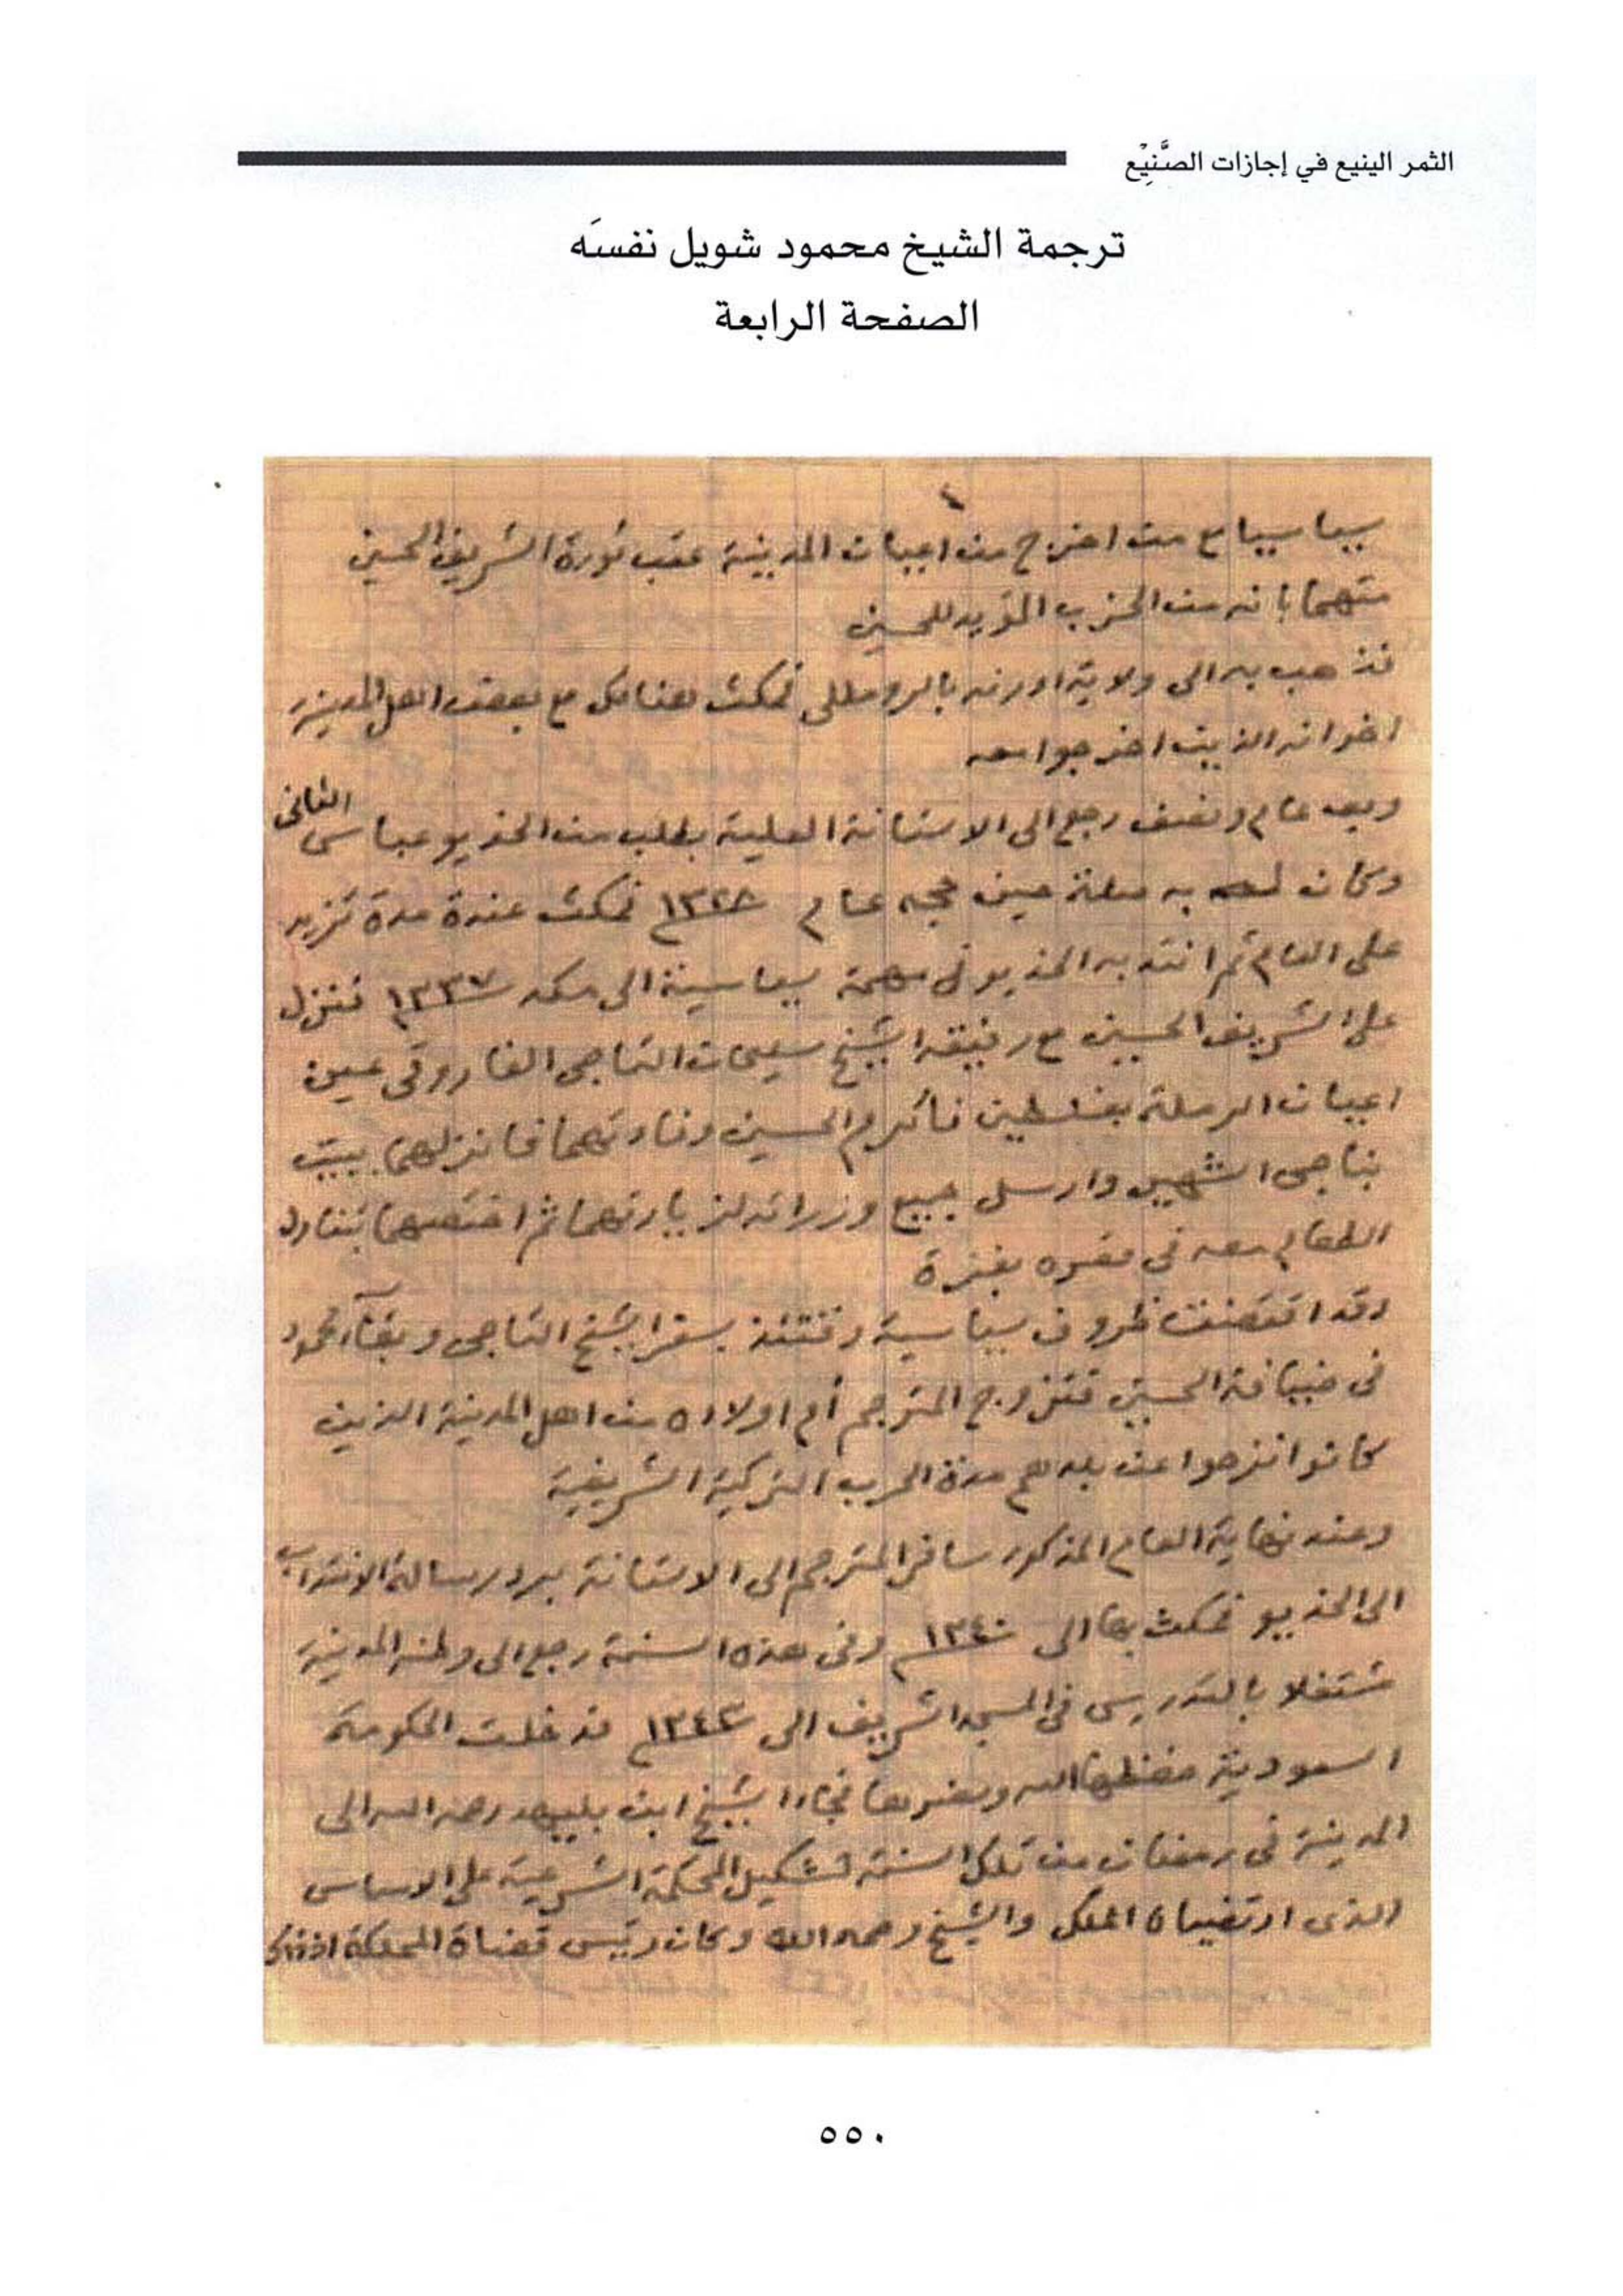 الثمر الينيع في إجازات الصَّنِيْع
ترجمة الشيخ محمود شويل نفسَه
الصفحة الرابعة
٤
سياسيا مع من اخرج من اعيان المدينة عقب ثورة الشريف الحسين
متهما بانه من الحزب المؤيد للحسين
فذهب به الى ولاية ادرنه بالروملى فمكث هنالك مع بعض اهل المدينة
اخوانه الذين اخرجوا معه
وبعد عام ونصف رجع الى الاستانة العلية بطلب من الخديو عباس الثانى
وكان له به صلة حين حجه عام ١٣٢٨ فمكث عنده مدة تزيد
على العام ثم انتدبه الخديو فى مهمة سياسية الى مكه ١٣٣٧ فنزل
على الشريف الحسين مع رفيقه الشيخ سليمان التاجى الفاروقى عين
اعيان الرملة بفلسطين فأكرم الحسين وفادتهما فانزلهما ببيت
بناجى الشهير وارسل جميع وزرائه لزيارتهما ثم اختصهما بتناول
الطعام معه فى قصره بغزة
وقد اقتضت ظروف سياسية وقتئذ بسفر الشيخ التاجى وبقاء محمود
فى ضيافة الحسين فتزوج المترجم أم اولاده من اهل المدينة الذين
كانوا نزحوا عن بلدهم مدة الحرب التركية الشريفية
وعند نهاية العام المذكور سافر المترجم الى الاستانة برد رسالة الانتداب
الى الخديو فمكث بها الى ١٣٤٠ وفى هذه السنة رجع الى وطنه المدينة
مشتغلا بالتدريس فى المسجد الشريف الى ١٣٤٤ فدخلت الحكومة
السعودية حفظها الله ونصرها فجاء الشيخ ابن بليهد رحمه الله الى
المدينة فى رمضان من تلك السنة لتشكيل المحكمة الشرعية على الاساس
الذى ارتضياه الملك والشيخ رحمه الله وكان رئيس قضاة المملكة اذذاك
٥٥٠